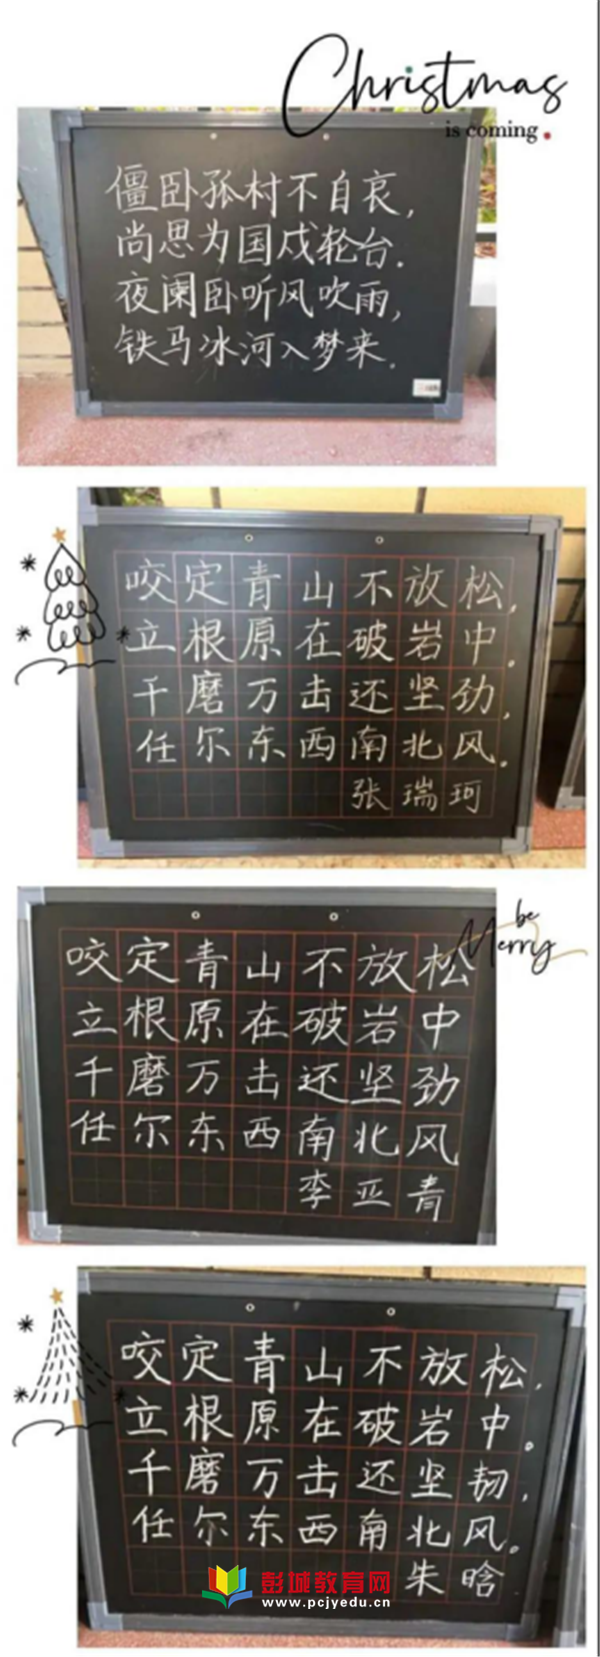 Christmas
is coming.
僵卧孤村不自哀,
尚思为国戍轮台.
夜阑卧听风吹雨,
铁马冰河入梦来.
咬定青山不放松,
立根原在破岩中。
千磨万击还坚劲,
任尔东西南北风。
张瑞珂
be
Merry
咬定青山不放松
立根原在破岩中
千磨万击还坚劲
任尔东西南北风
李亚青
咬定青山不放松,
立根原在破岩中。
千磨万击还坚韧,
任尔东西南北风。
朱晗
彭城教育网
www.pcjyedu.cn